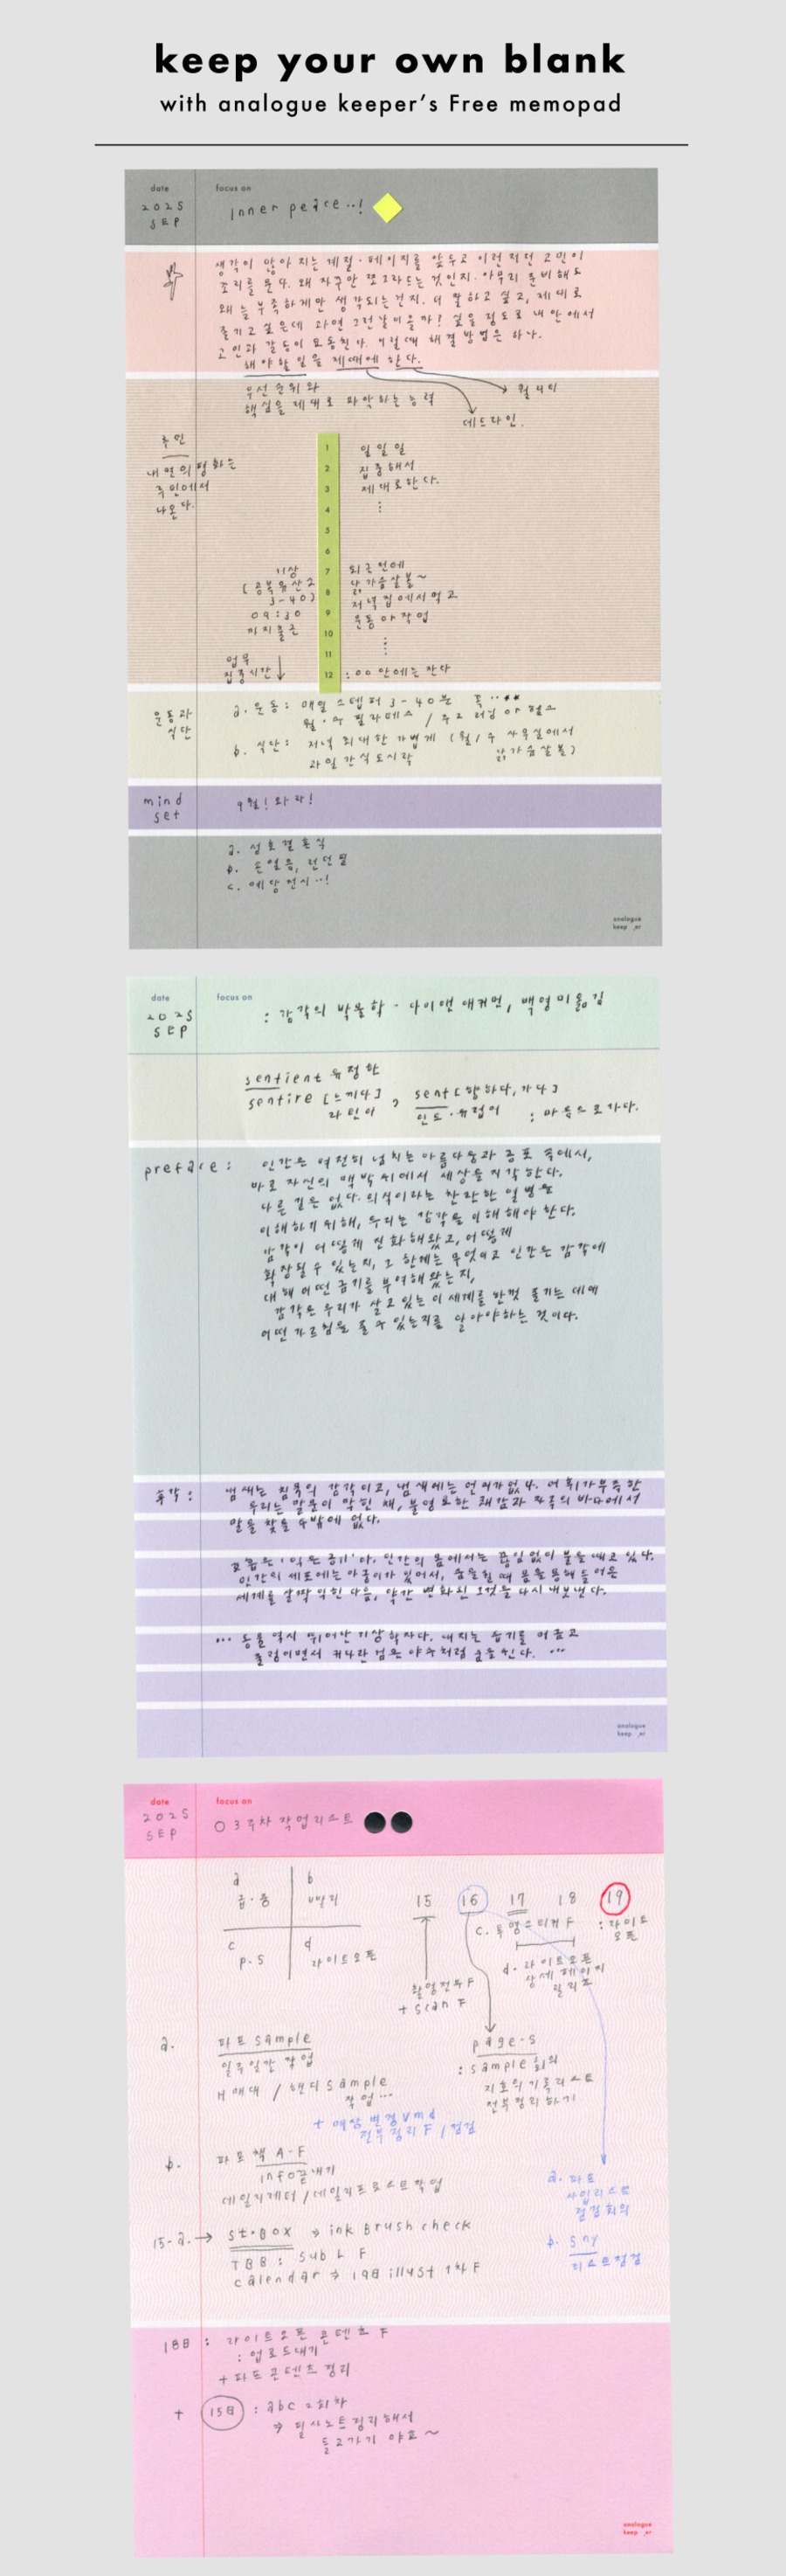 keep your own blank
with analogue keeper's Free memopad
date
focus on
2025
SEP
Inner peace..!
생각이 많아 지는 계절. 페이지를 앞두고 이런저런 고민이
꼬리를 문다. 왜 자꾸만 쪼그라드는 것인지. 아무리 준비해도
왜 늘 부족하게만 생각되는건지. 더 잘하고 싶고, 제대로
즐기고 싶은데 과연 그런날이 올까? 싶을 정도로 내 안에서
고민과 갈등이 요동친다. 이럴때 해결 방법은 하나.
해야할 일을 제때에 한다.
우선순위와
핵심을 제대로 파악하는 능력
퀄리티
데드라인.
루틴
내면의 평화는
루틴에서
나온다.
1
2
3
4
5
6
7
8
9
10
11
12
일일일
집중해서
제대로한다.
기상
(공복유산소
3-40)
09:30
까지출근
업무
집중시간
퇴근전에
닭가슴살볼~
저녁 집에서먹고
운동 or 작업
:00 안에는 잔다
운동과
식단
a. 운동: 매일 스텝퍼 3-40분 꼭..**
월.수 필라테스 / 화목 러닝 or 헬스
b. 식단: 저녁 최대한 가볍게 (월/수 사무실에서
과일 간식도시락 닭가슴살볼)
mind
set
9월! 와라!
a. 성호결혼식
b. 손열음, 런던필
c. 예당전시..!
analogue
keeper
date
focus on
2025
SEP
: 감각의 박물학 - 다이앤 애커먼, 백영미 옮김
sentient 유정한
sentire [느끼다]
라틴어
, sent [향하다, 가다]
인도.유럽어 : 마음으로가다.
preface:
인간은 여전히 넘치는 아름다움과 공포 속에서,
바로 자신의 맥박 위에서 세상을 지각한다.
다른 길은 없다. 의식이라는 찬란한 열병을
이해하기 위해, 우리는 감각을 이해해야 한다.
감각이 어떻게 진화해왔고, 어떻게
확장될 수 있는지, 그 한계는 무엇이고 인간은 감각에
대해 어떤 금기를 부여해왔는지,
감각은 우리가 살고 있는 이 세계를 한껏 즐기는 데에
어떤 가르침을 줄 수 있는지를 알아야하는 것이다.
후각:
냄새는 침묵의 감각이고, 냄새에는 언어가없다. 어휘가부족한
우리는 말문이 막힌 채, 불명료한 쾌감과 자극의 바다에서
말을 찾을 수밖에 없다.
호흡은 '익은 공기'다. 인간의 몸에서는 끊임없이 불을 때고 있다.
인간의 세포에는 아궁이가 있어서, 숨을쉴 때 몸을 통해 들어온
세계를 살짝 익힌 다음, 약간 변화된 그것을 다시 내보낸다.
... 동물 역시 뛰어난 기상학자다. 대지는 습기를 머금고
출렁이면서 커다란 검은 야수처럼 숨을 쉰다. ...
analogue
keeper
date
focus on
2025
SEP
03주차 작업리스트
a
b
c
p.s
d
라이트오픈
15
16
17
18
19
c. 투명스티커 F
: 라이트
오픈
촬영전부F
+ scan F
d. 라이트오픈
상세 페이지
page.s
: sample 회의
지호의기록리스트
전부정리하기
a.
파트 sample
일주일간 작업
H 매대 / 핸디 sample
작업...
+ 매장 변경 vmd
전부 정리 F / 점검
b.
파트 책 A-F
info끝내기
데일리레터 / 데일리포스트 작업
15-a. → st.BOX ⇒ ink Brush check
TBB: Sub L F
calendar ⇒ 19日 illust 1차 F
a. 파트
사입리스트
점검회의
b. sny
리스트점검
18日 : 라이트오픈 콘텐츠 F
: 업로드대기
+ 파트 콘텐츠 정리
+ 15日 : abc 2회차
⇒ 필사노트 정리해서
들고가기 야호~
analogue
keeper